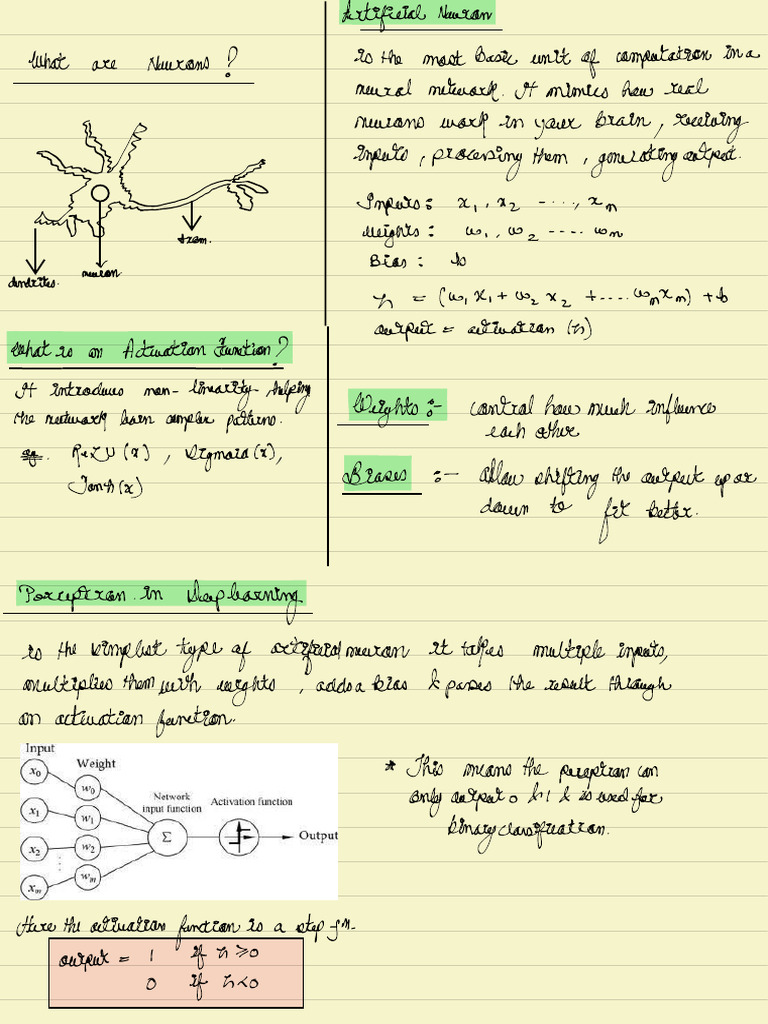 What are Neurons?
dendrites.
neuron
axon.
Artificial Neuron
is the most basic unit of computation in a
neural network. It mimics how real
neurons work in your brain, receiving
inputs, processing them, generating output.
Inputs: x₁, x₂ ----, xₙ
Weights: w₁, w₂ ---- wₙ
Bias: b
z = (w₁x₁ + w₂x₂ + .... wₙxₙ) + b
output = activation (z)
What is an Activation Function?
It introduces non-linearity, helping
the network learn complex patterns.
eg. ReLU(x), Sigmoid(x),
Tanh(x)
Weights:- control how much influence
each other
Biases :- allow shifting the output up or
down to fit better.
Perceptron in Deep learning
is the simplest type of artificial neuron it takes multiple inputs,
multiplies them with weights, adds a bias & passes the result through
an activation function.
Input
Weight
Network
input function
Activation function
x₀
w₀
x₁
w₁
Σ
Output
x₂
w₂
⋮
xₘ
wₘ
* This means the perceptron can
only output 0 & 1 & is used for
binary classification.
Here the activation function is a step fⁿ.
output = 1 if z ≥ 0
0 if z < 0